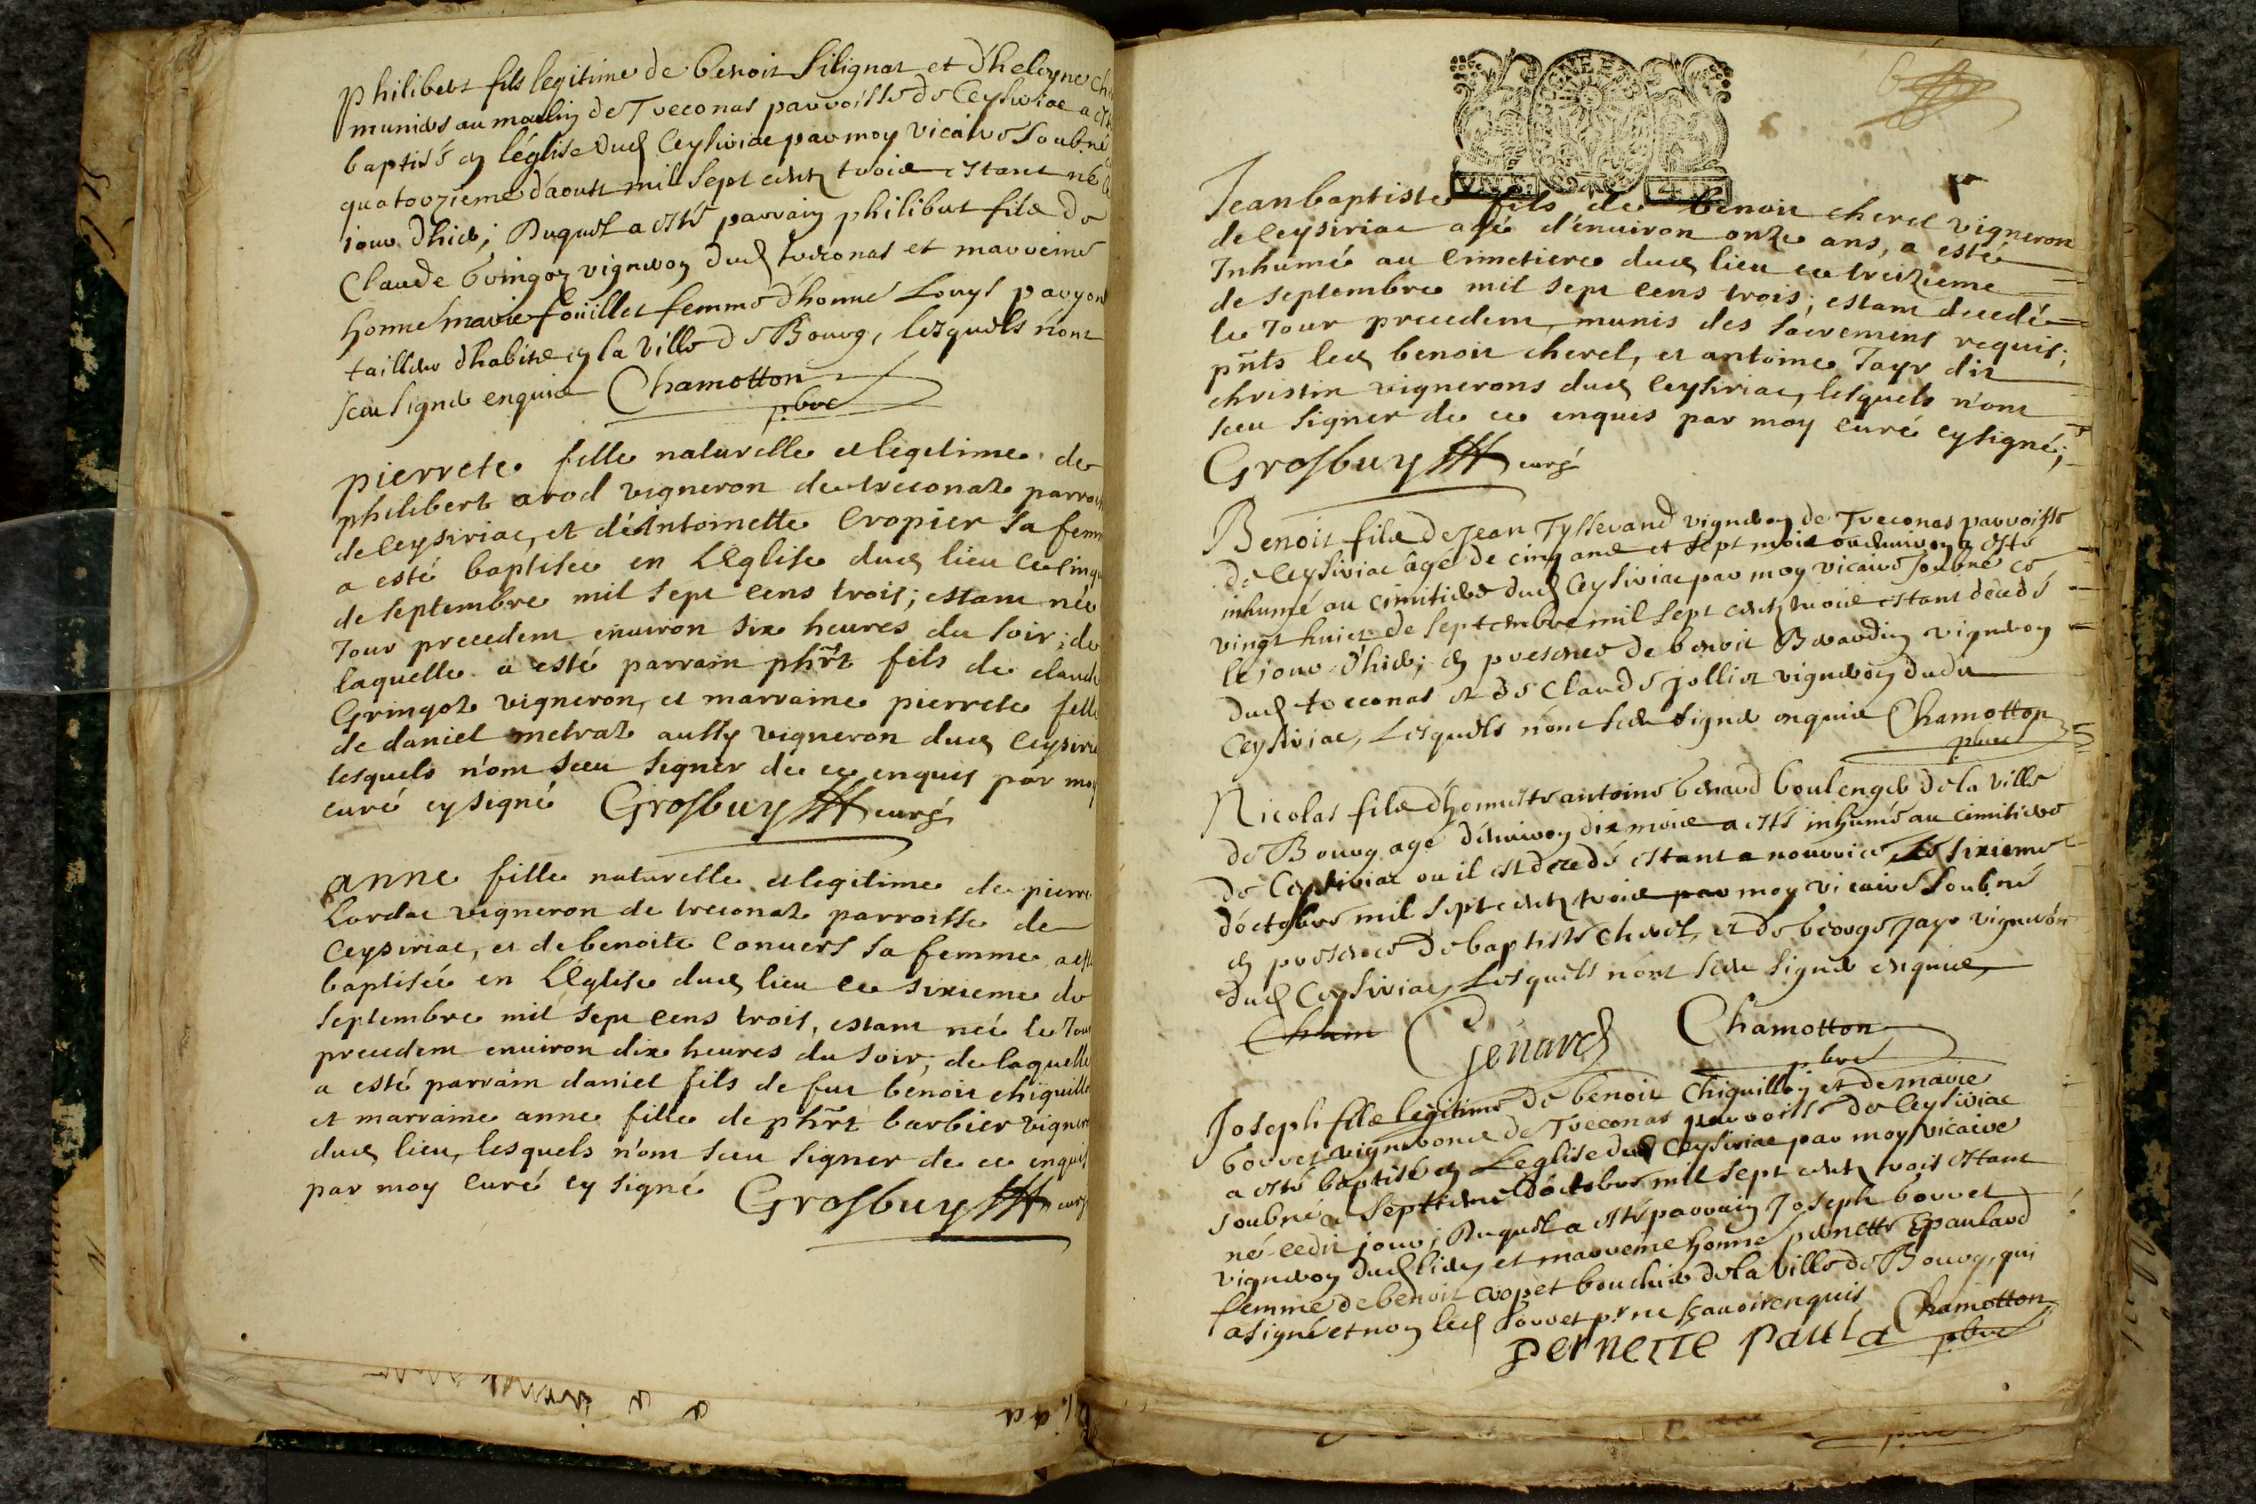 Philibert fils legitime de benoit Silignat et d'heleyne
muniers au moulin de Treconas parroisse de Ceysiriac a
baptisé en léglise dud Ceysiriac par moy vicaire soubné
quatorzieme d'aoust mil sept cents trois estant né le
jour d'hier; Duquel a esté parrain philibert fils de
Claude Gringoz vigneron dud treconas et marreine
honne marie foüillet femme d'honne Louys
tailleur d'habits en la ville de Bourg, lesquels n'ont
sceu signer enquis Chamotton
pbre
pierrete fille naturelle et legitime de
philibert arod vigneron de treconaz
de ceysiriac, et d'Antoinette Cropier sa
a esté baptisée en L'Eglise dud lieu ce
de septembre mil sept cens trois; estant née
Jour precedent enuiron six heures du soir; de
laquelle a esté parrain phrt fils de
Gringoz vigneron, et marraine pierrete
de daniel metraz aussy vigneron dud
lesquels n'ont sceu signer de ce enquis par moy
curé cy signé Grosbuy curé
anne fille naturelle et legitime de pierre
Lardac vigneron de treconaz parroisse de
Ceysiriac, et de benoite Conuers sa femme a
baptisée en L'Eglise dud lieu ce sixieme de
Septembre mil sept cens trois, estant née le Jour
precedent enuiron dix heures du soir; de laquelle
a esté parrain daniel fils de feu benoit
et marraine anne fille de phrt barbier
dud lieu, lesquels n'ont sceu signer de ce enquis
par moy curé cy signé Grosbuy curé
6
Jean baptiste fils de benoit cherel vigneron
de Ceysiriac agé d'enuiron onze ans, a esté
Inhumé au Cimetiere dud lieu ce treizieme
de septembre mil sept cens trois; estant decedé
le Jour precedent, munis des sacremens requis;
pnts led benoit cherel, et antoine Jayr dit
christin vignerons dud Ceysiriac, lesquels n'ont
sceu signer de ce enquis par moy curé cy signé;
Grosbuy curé
Benoit fils de Jean Tysserand vigneron de Treconas parroisse
de Ceysiriac âgé de cinq ans et sept mois ou enuiron a esté
inhumé au cimitiere dud Ceysiriac par moy vicaire soubné ce
vingt huict de septembre mil sept cents trois estant decedé
le jour d'hier; en presence de benoit vigneron
dud treconas et de Claude jolliet vigneron dudit
Ceysiriac, Lesquels n'ont sceu signer enquis Chamotton
pbre
Nicolas fils d'honneste antoine benard boulenger de la ville
de Bourg agé d'enuiron dix mois a esté inhumé au cimitiere
de Ceysiriac ou il est decedé estant a nourrice, le sixieme
d'octobre mil sept cents trois par moy vicaire soubné
en presence de baptiste cherel, et de george Jayr vigneron
dud Ceysiriac, Lesquels n'ont sceu signer enquis
Cham Chamotton
pbre
Joseph fils legitime de benoit Chiquillon et de marie
borret vignerons de Treconas parroisse de Ceysiriac
a esté baptisé en Leglise dud Ceysiriac par moy vicaire
soubné ce septieme d'octobre mil sept cents trois estant
né cedit jour; Duquel a esté parrain Joseph borret
vigneron dud lieu et marreine honne pernette Epaulard
femme de benoit cropet boucher de la ville de Bourg, qui
a signé et non led borret pr ne sçauoir enquis Chamotton
pernette paula pbre